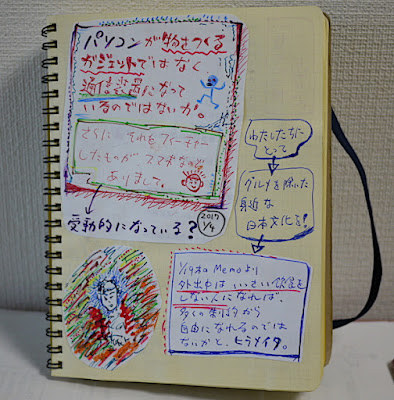 パソコンが物をつくる
ガジェットではなく
通信装置になって
いるのではないか。
さらに それをフィーチャー
したものが スマホなので
ありまして。
受動的になっている?
2017
1/9
わたしたちに
とって
グルメを除いた
身近な
日本文化を!
Memoより
外出中は いっさい飲食を
しない人になれば、
多くの制約から
自由になれるのでは
ないかと、ヒラメイタ。